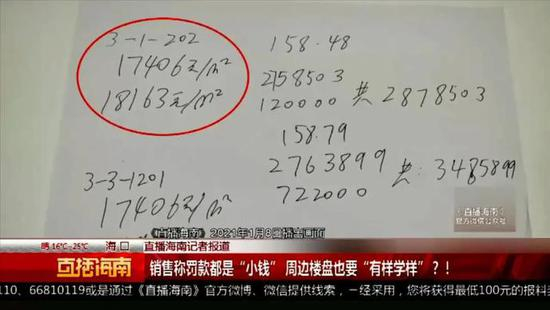 3-1-202
17406元/m²
18163元/m²
158.48
2158503
720000 共 2878503
158.79
2763899 共: 3485899
722000
3-3-1201
17406元/m²
《直播海南》
官方微信公众号
《直播海南》 2021年1月8日播出画面
晴 16℃~25℃ 海口 直播海南记者报道
直播海南
销售称罚款都是“小钱” 周边楼盘也要“有样学样”?!
110、66810119或是通过《直播海南》官方微博、微信提供线索,一经采用,您将获得最低100元的报料奖